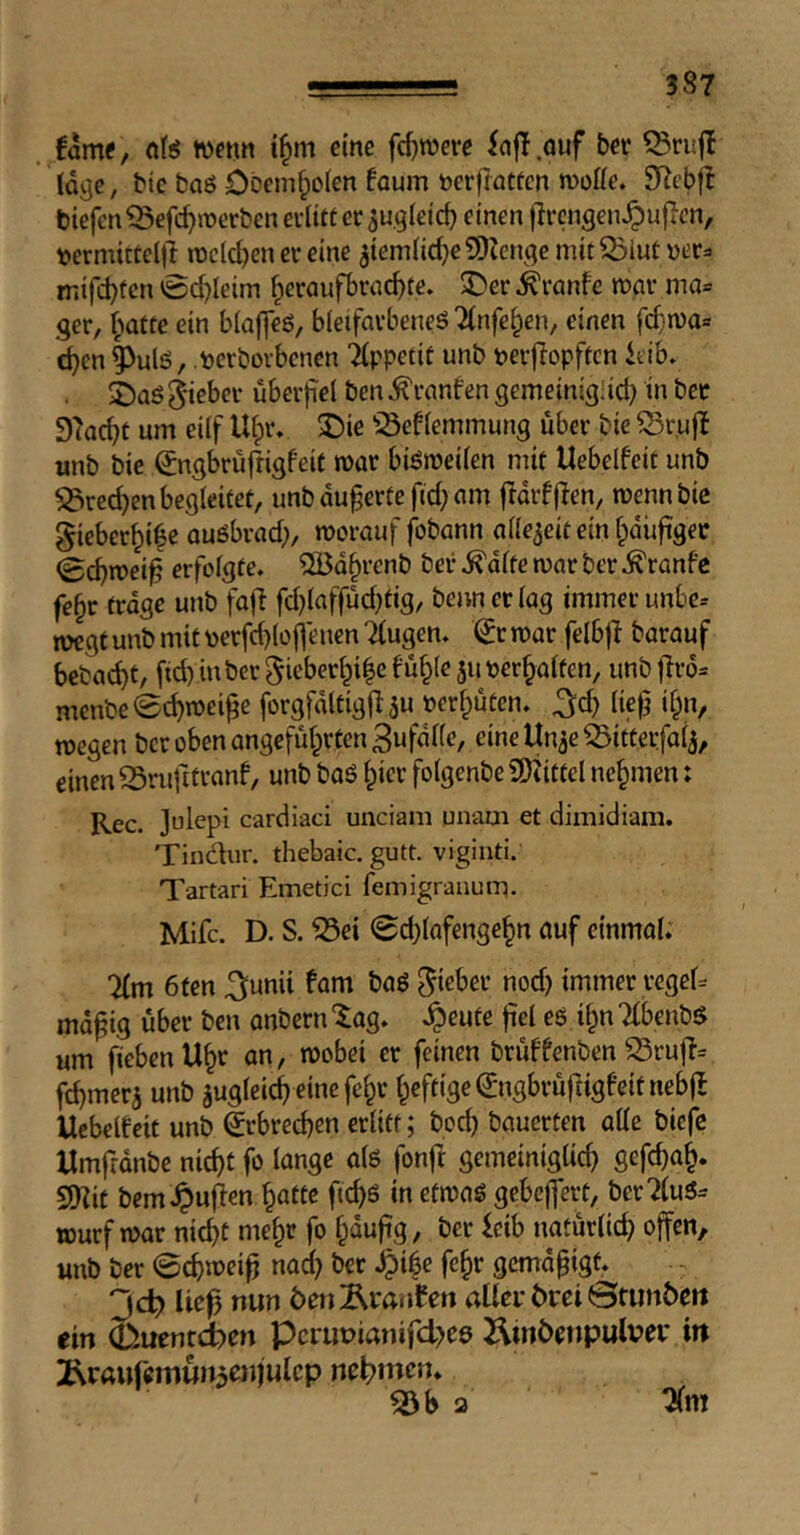 387
käme, als wenn ihm eine schwere Last auf der Brust
läge, die das Odemholen kaum verstatten wolle. Nebst
diesen Beschwerden erlitt er zugleich einen strengen Husten,
vermittelst welchen er eine ziemliche Menge mit Blut ver-
mischten Schleim heraufbrachte. Der Kranke war ma-
ger, hatte ein blasses, bleifarbenes Ansehen, einen schwa-
chen Puls, verdorbenen Appetit und verstopften Leib.
Das Fieber überfiel den Kranken gemeiniglich in der
Nacht um eilf Uhr. Die Beklemmung über die Brust
und die Engbrüstigkeit war bisweilen mit Uebelkeit und
Brechen begleitet, und äußerte sich am stärksten, wenn die
Fieberhitze ausbrach, worauf sodann allezeit ein häufiger
Schweiß erfolgte. Während der Kälte war der Kranke
sehr träge und fast schlafsüchtig, denn er lag immer unbe-
wegt und mit verschlossenen Augen. Er war selbst darauf
bedacht, sich in der Fieberhitze kühle zu verhalten, und strö-
mende Schweiße sorgfältigst zu verhüten. Ich ließ ihn,
wegen der oben angeführten Zufälle, eine Unze Bittersalz,
einen Brusttrank, und das hier folgende Mittel nehmen:
Rec. Julepi cardiaci unciam unam et dimidiam.
Tinctur. thebaic. gutt. viginti.
Tartari Emetici semigranum.
Misc. D. S. Bei Schlafengehn auf einmal.
Am 6ten Junii kam das Fieber noch immer regel-
mäßig über den andern Tag. Heute fiel es ihn Abends
um sieben Uhr an, wobei er seinen drükkenden Brust-
schmerz und zugleich eine sehr heftige Engbrüstigkeit nebst
Uebelkeit und Erbrechen erlitt; doch dauerten alle diese
Umstände nicht so lange als sonst gemeiniglich geschah.
Mit dem Husten hatte sichs in etwas gebessert, der Aus-
wurf war nicht mehr so häufig, der Leib natürlich offen,
und der Schweiß nach der Hitze sehr gemäßigt.
Ich ließ nun den Kranken aller drei Stunden
ein Quentchen Peruvianisches Rindenpulver in
Krausemünzenjulep nehmen.
Bb 2 Am